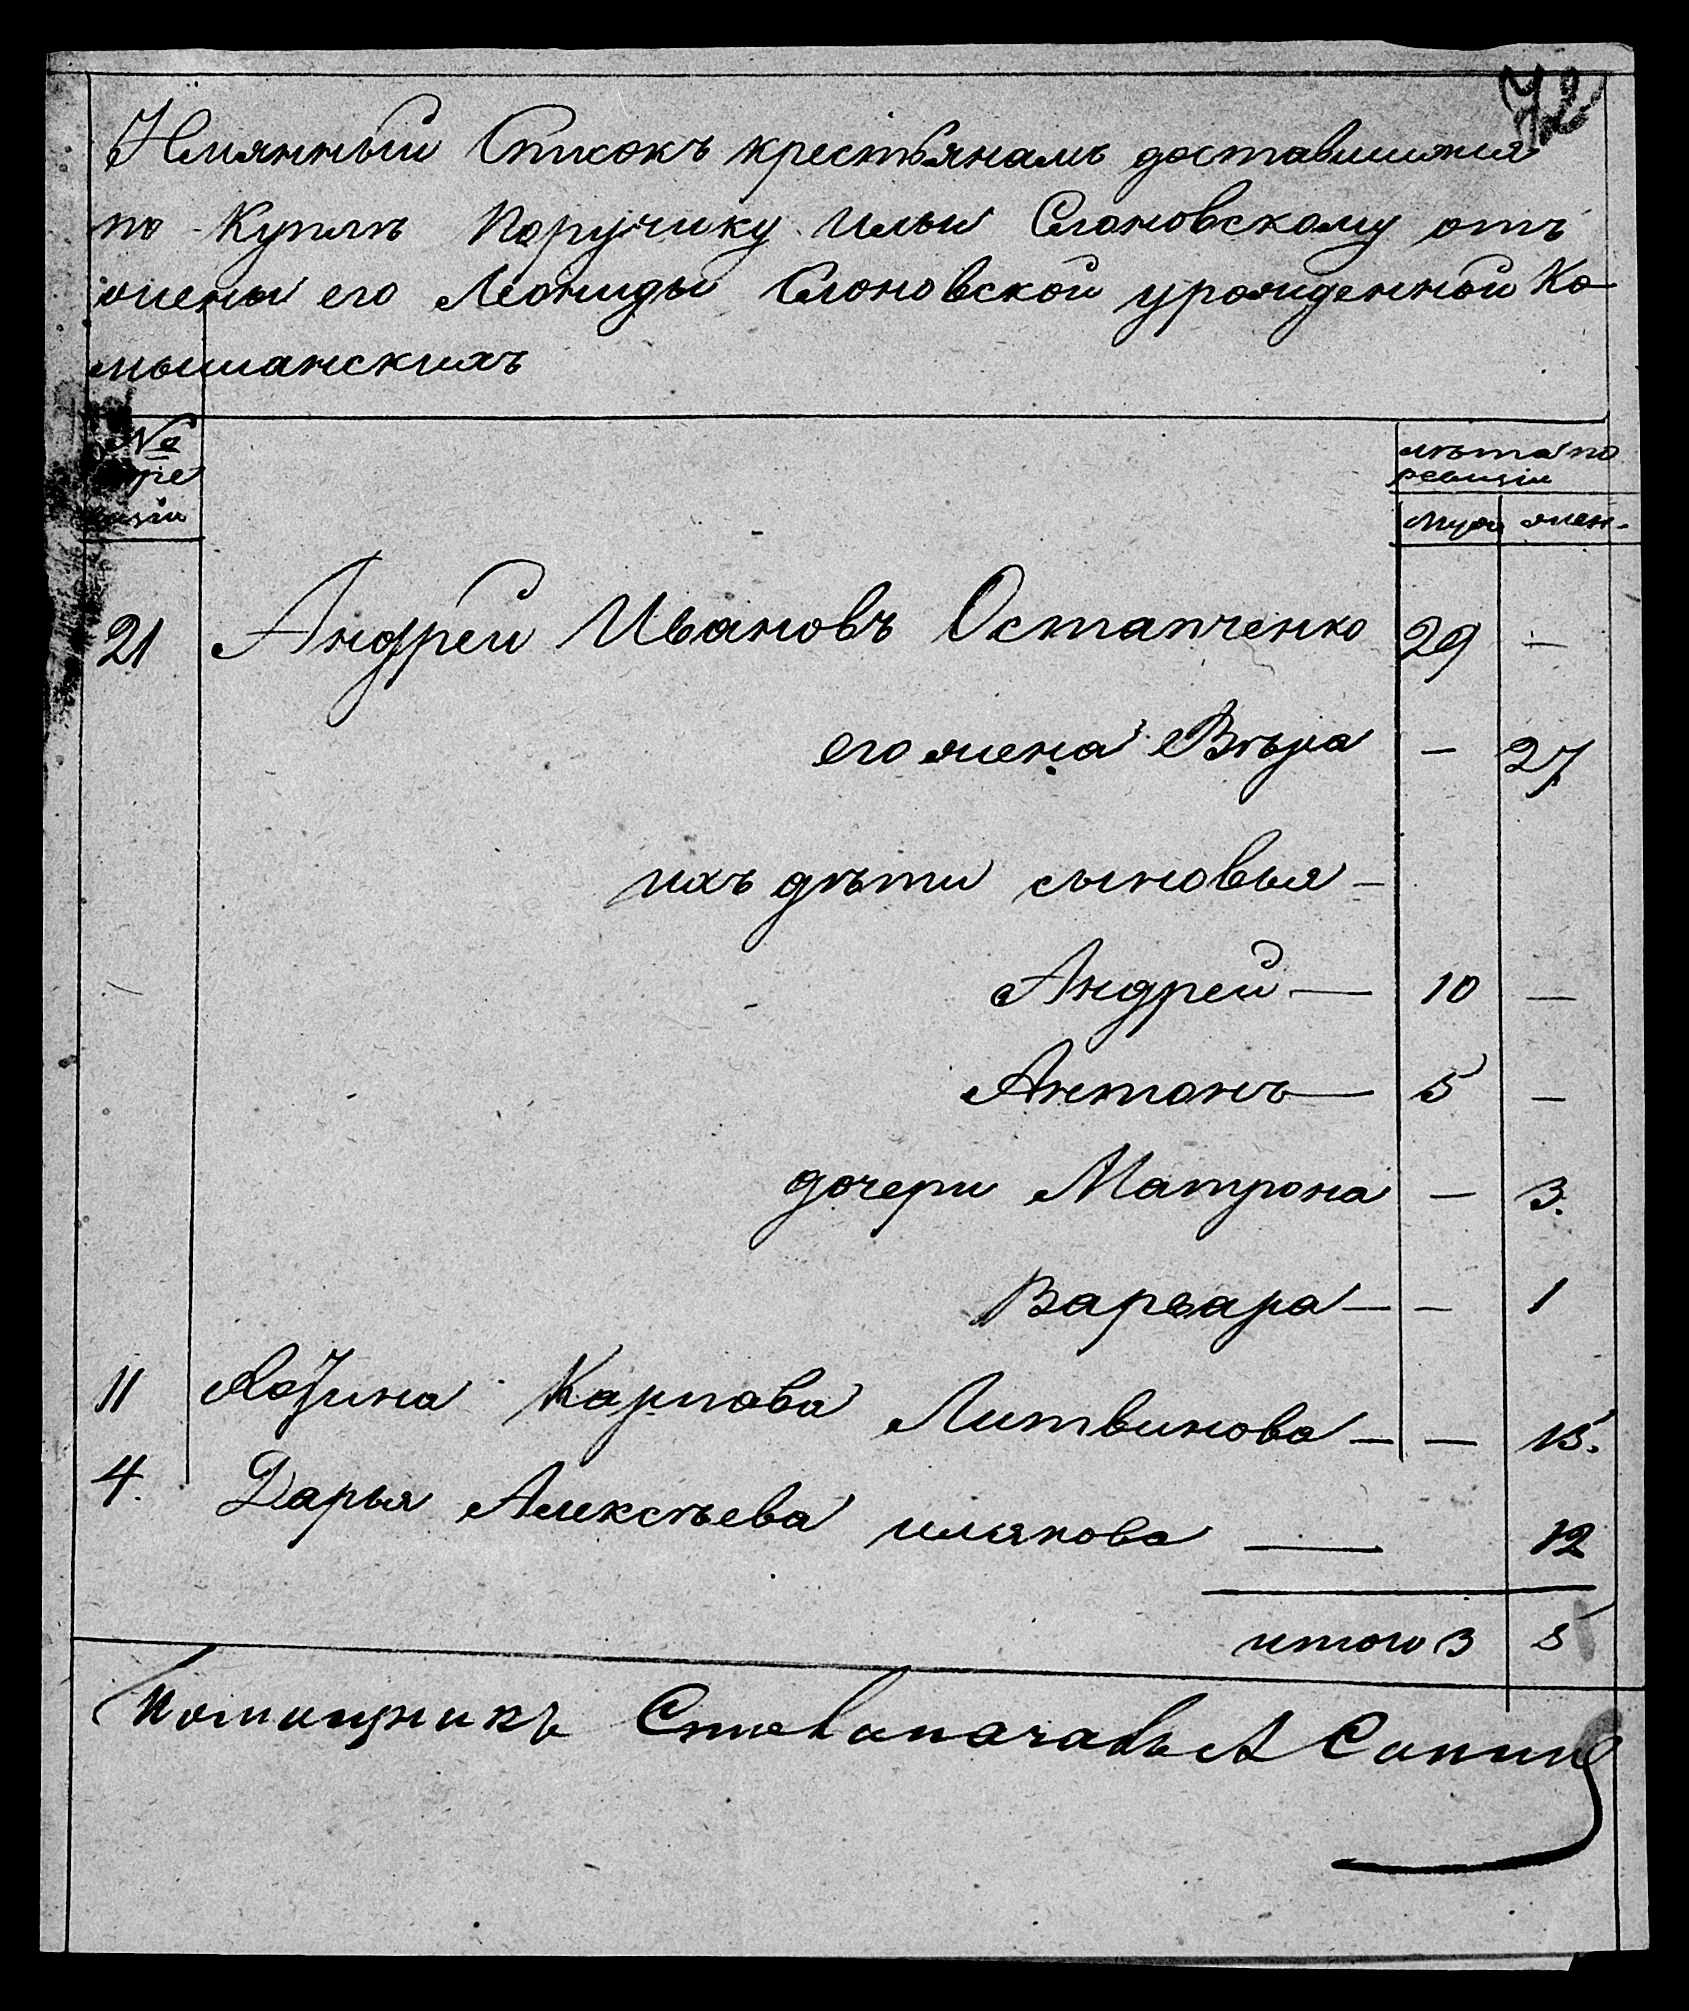 72
Имянный Списокъ крестьянамъ доставшимся
по Куплѣ Поручику Ильи Слоновскому отъ
жены его Леониды Слоновской урожденной Ко-
мышанскихъ
№ лѣта по
ре ревизіи
визіи муж. жен.
21 Андрей Ивановъ Остапченко 29 —
его жена Вѣра — 27
ихъ дѣти сыновья —
Андрей — 10 —
Антонъ — 5 —
дочери Матрона — 3.
Варвара — — 1
11 Карпова Литвинова — — 15.
4. Дарья Алексѣева шляхова — 12
итого 3 5